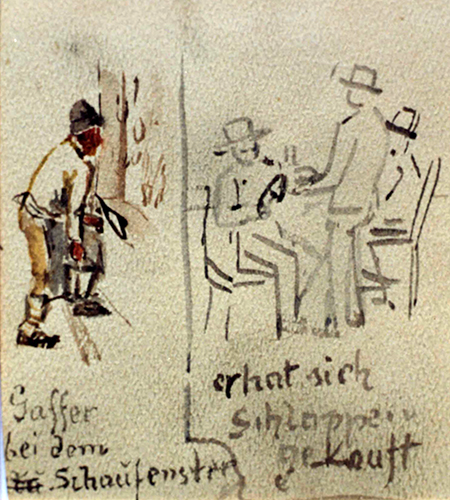 Gaffer
bei dem
Schaufenster
er hat sich
Schlappen
gekauft